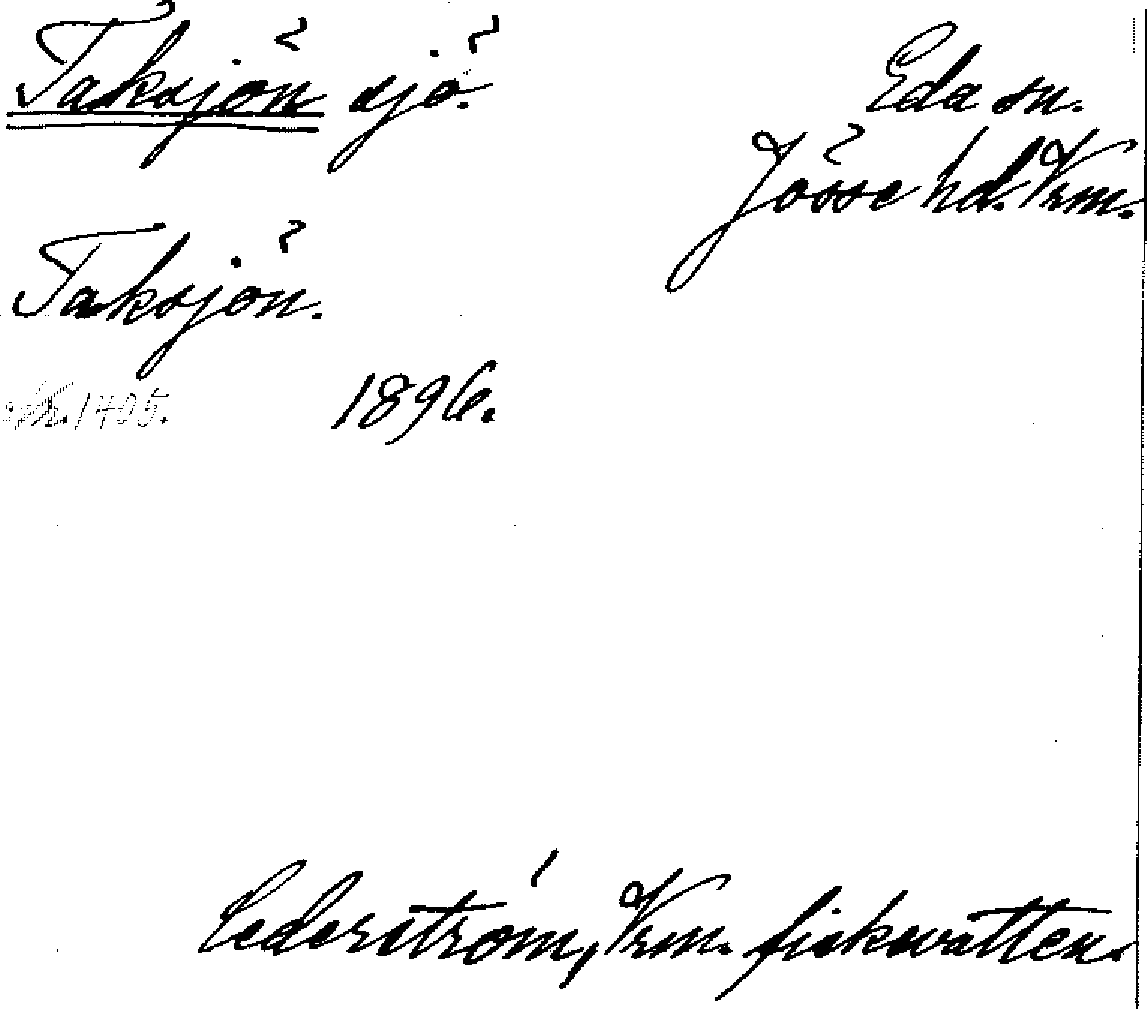 Taksjön sjö.
Eda sn.
Jösse hd. Vrm.
Taksjön.
1405. 1896.
Cederström, Vrm. fiskvatten.